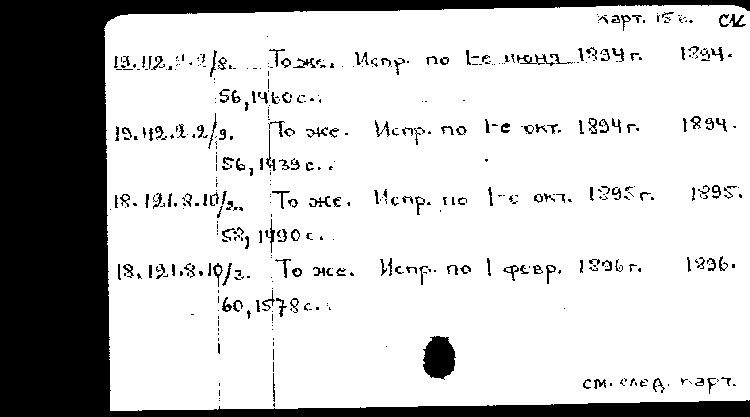 карт. 15 б. см
19.112.2.2/8. То же. Испр. по 1-е июня 1894 г. 1894.
56, 1460 с.
19.112.2.2/9. То же. Испр. по 1-е окт. 1894 г. 1894.
56, 1439 с.
18.121.8.10/2. То же. Испр. по 1-е окт. 1895 г. 1895.
58, 1490 с.
18.121.8.10/3. То же. Испр. по 1 февр. 1896 г. 1896.
60, 1578 с.
см. след. карт.